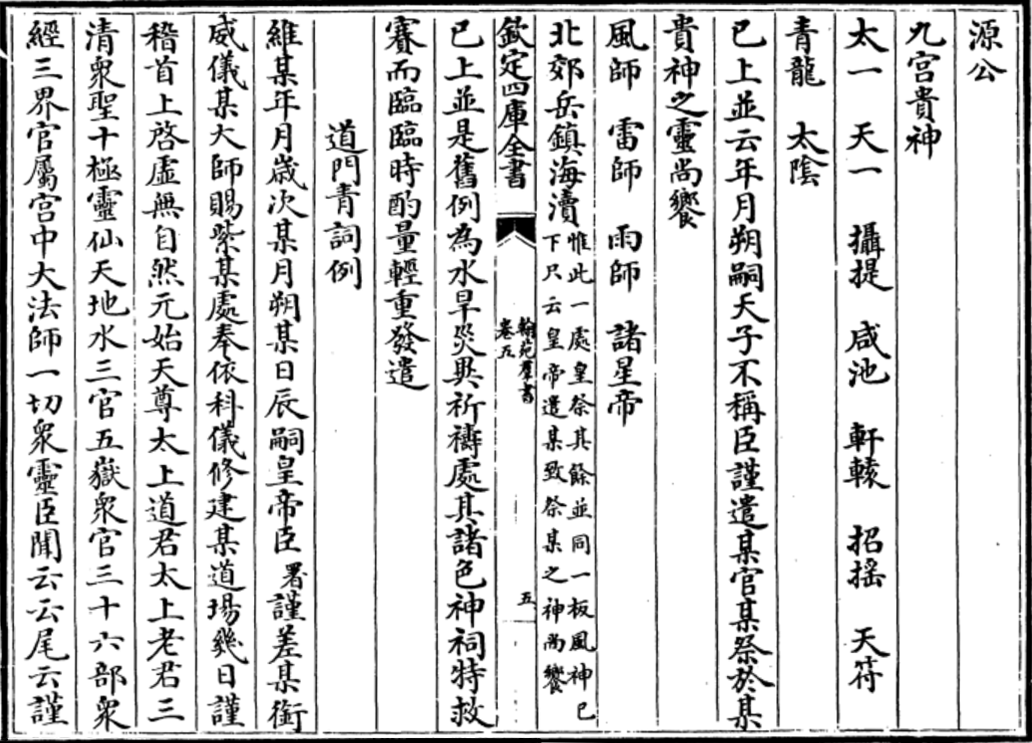 源公
九宫貴神
太一　天一　攝提　咸池　軒轅　招摇　天符
青龍　太陰
已上並云年月朔嗣天子不稱臣謹遣某官某祭於某
貴神之靈尚饗
風師　雷師　雨師　諸星帝
北郊岳鎮海瀆惟此一處皇祭其餘並同一板風神已
下只云皇帝遣某致祭某之神尚饗
欽定四庫全書
翰苑羣書
卷五
五
已上並是舊例為水旱災異祈禱處其諸色神祠特敕
賽而臨臨時酌量輕重發遣
道門青詞例
維某年月歲次某月朔某日辰嗣皇帝臣署謹差某銜
威儀某大師賜紫某處奉依科儀修建某道場幾日謹
稽首上啓虛無自然元始天尊太上道君太上老君三
清衆聖十極靈仙天地水三官五嶽衆官三十六部衆
經三界官屬宫中大法師一切衆靈臣聞云云尾云謹